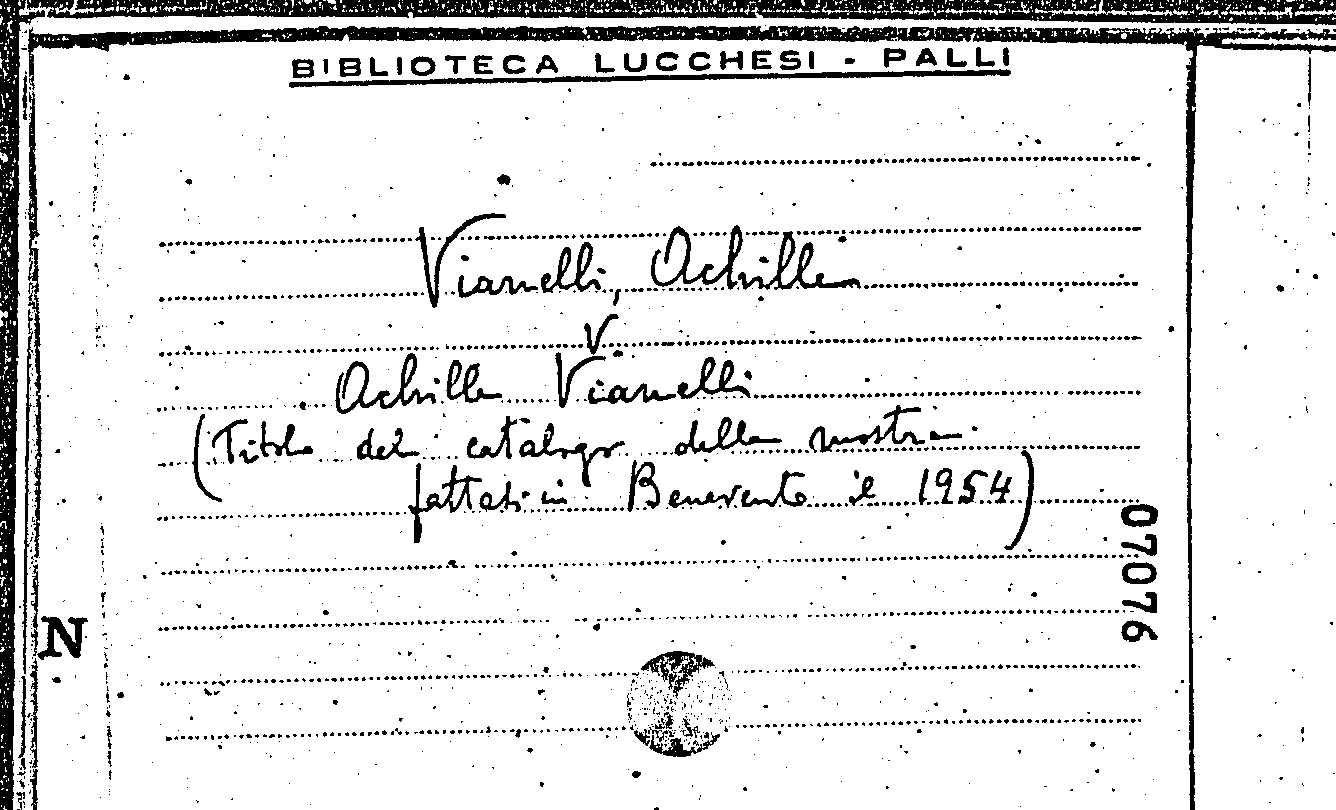 BIBLIOTECA LUCCHESI - PALLI
Vianelli, Achille
V.
Achille Vianelli
(Titolo del catalogo della mostra
fattasi in Benevento il 1954)
07076
N